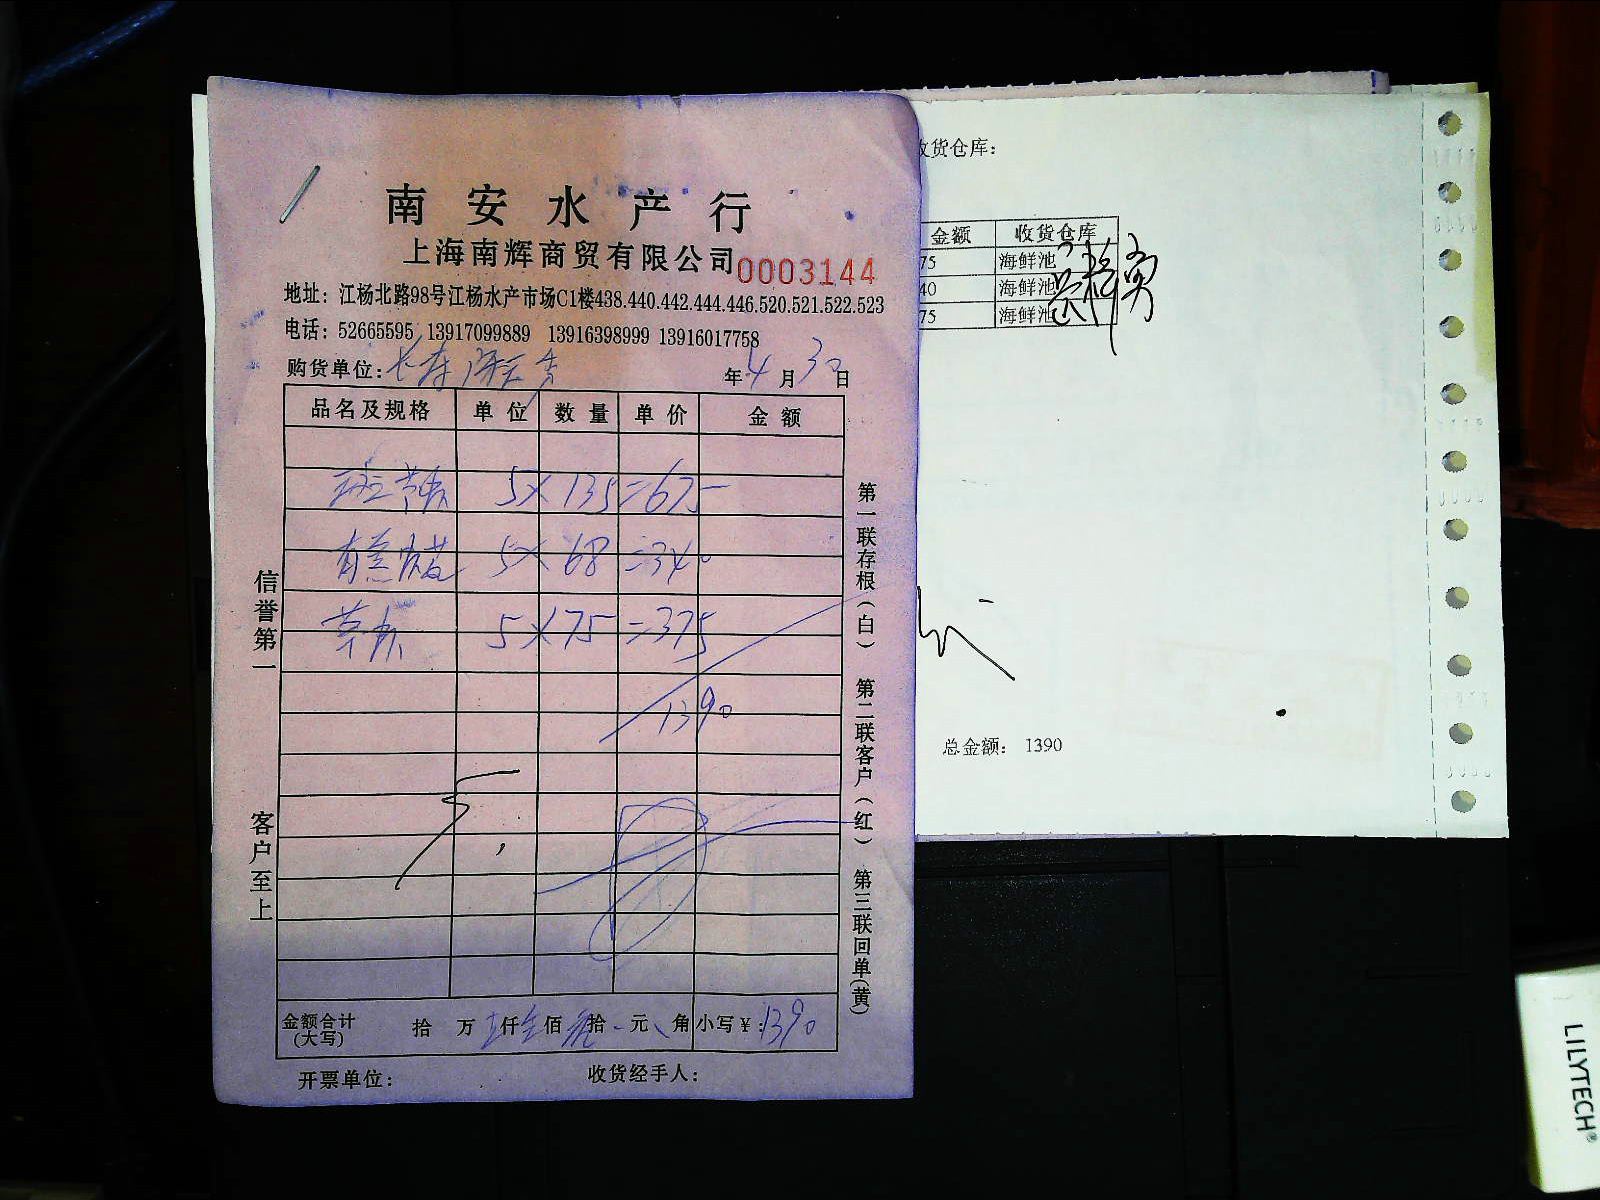 南安水产行
上海南辉商贸有限公司 0003144
地址：江杨北路98号江杨水产市场C1楼438.440.442.444.446.520.521.522.523
电话：52665595 13917099889 13916398999 13916017758
购货单位： 年 4 月 30 日
品名及规格 单位 数量 单价 金额
斑节虾 5×135=675
5×68=340
草虾 5×75=375
1390
金额合计(大写) 拾 万 仟 佰 拾 元 角 小写¥:1390
开票单位： 收货经手人：
信誉第一 客户至上
第一联存根(白) 第二联客户(红) 第三联回单(黄)
收货仓库：
金额 收货仓库
75 海鲜池
40 海鲜池
75 海鲜池
总金额： 1390
LILYTECH®